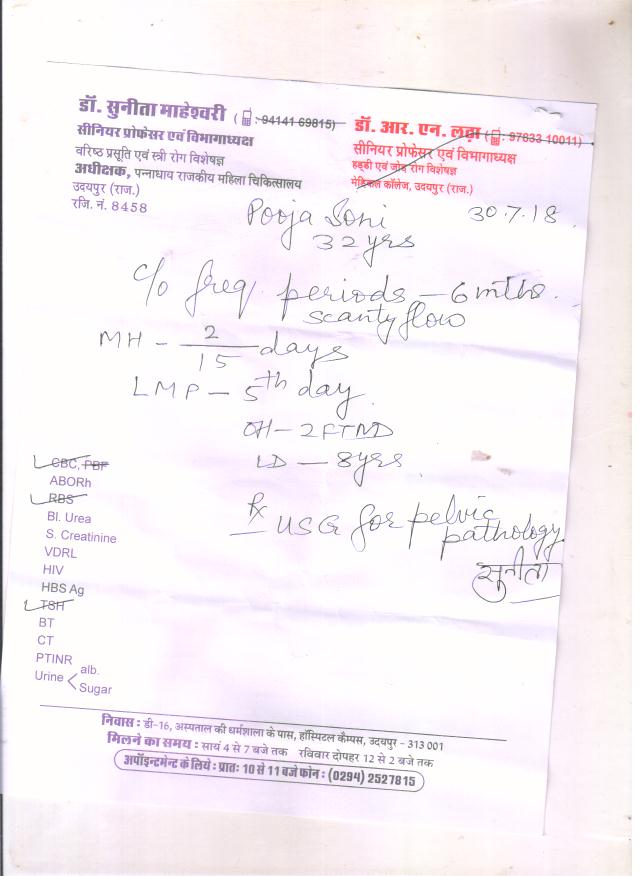 डॉ. सुनीता माहेश्वरी ( : 94141 69815)
सीनियर प्रोफेसर एवं विभागाध्यक्ष
वरिष्ठ प्रसूति एवं स्त्री रोग विशेषज्ञ
अधीक्षक, पन्नाधाय राजकीय महिला चिकित्सालय
उदयपुर (राज.)
रजि. नं. 8458
डॉ. आर. एन. लढ्ढा ( : 97833 10011)
सीनियर प्रोफेसर एवं विभागाध्यक्ष
हड्डी एवं जोड़ रोग विशेषज्ञ
मेडिकल कॉलेज, उदयपुर (राज.)
Pooja Soni 30.7.18
32 yrs
c/o freq. periods - 6 mths.
scanty flow
MH - 2/15 days
LMP - 5th day
OH - 2FTND
LD - 8 yrs
Rx USG for pelvic
pathology
सुनीता
CBC, PBF
ABORh
RBS
Bl. Urea
S. Creatinine
VDRL
HIV
HBS Ag
TSH
BT
CT
PTINR
Urine < alb.
Sugar
निवास : डी-16, अस्पताल की धर्मशाला के पास, हॉस्पिटल कैम्पस, उदयपुर - 313 001
मिलने का समय : सायं 4 से 7 बजे तक रविवार दोपहर 12 से 2 बजे तक
अपॉइन्टमेन्ट के लिये : प्रातः 10 से 11 बजे फोन : (0294) 2527815